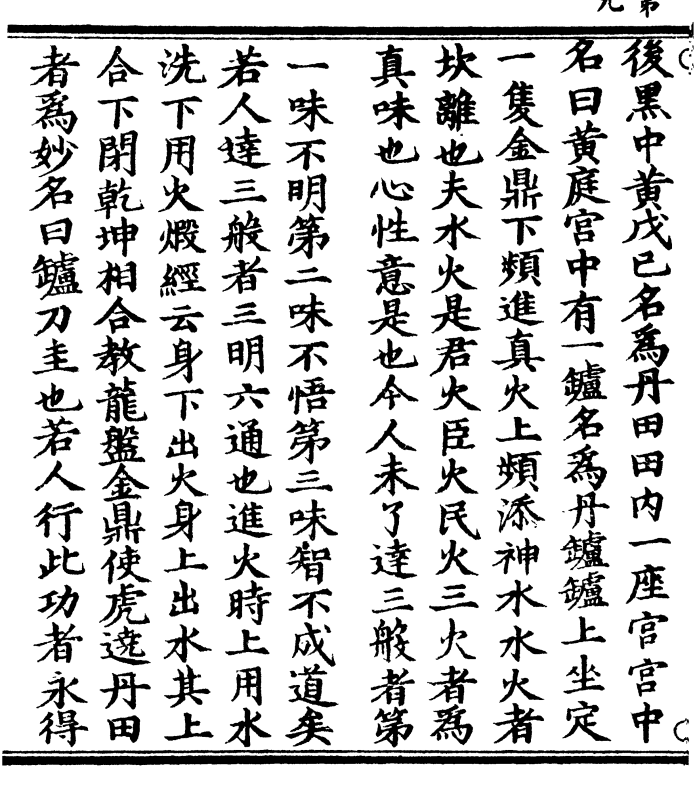 後黑中黃戊己名爲丹田田内一座宫宫中
名曰黃庭宫中有一鑪名爲丹鑪鑪上坐定
一隻金鼎下頻進真火上頻添神水水火者
坎離也夫水火是君火臣火民火三火者爲
真味也心性意是也今人未了達三般者第
一味不明第二味不悟第三味智不成道矣
若人達三般者三明六通也進火時上用水
洗下用火煅經云身下出火身上出水其上
合下閉乾坤相合教龍盤金鼎使虎遶丹田
者爲妙名曰鑪刀圭也若人行此功者永得